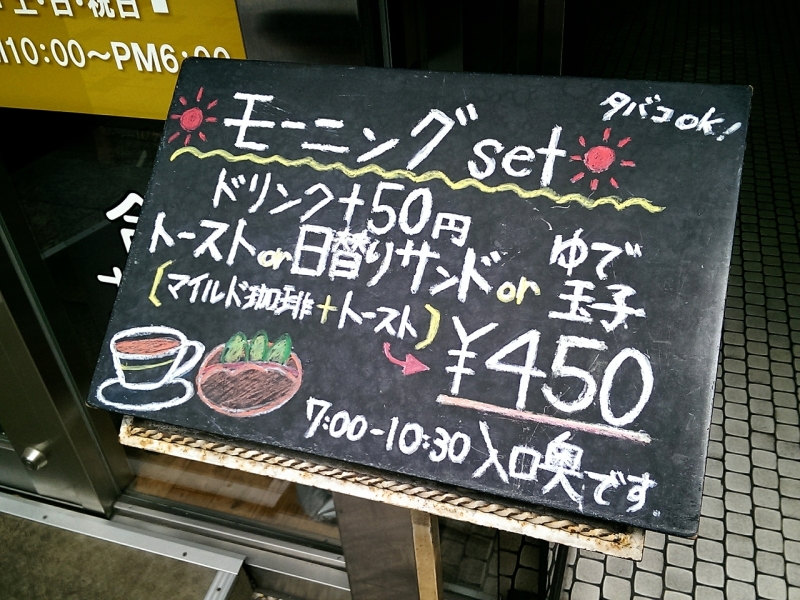 土・日・祝日
10:00〜PM6:00
タバコok!
モーニングset
ドリンク+50円
トーストor日替りサンドorゆで玉子
(マイルド珈琲+トースト)
¥450
7:00-10:30 入口奥です